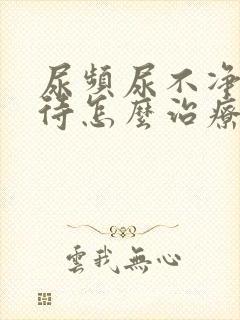 尿頻尿不净
待怎麼治療
雲我無心